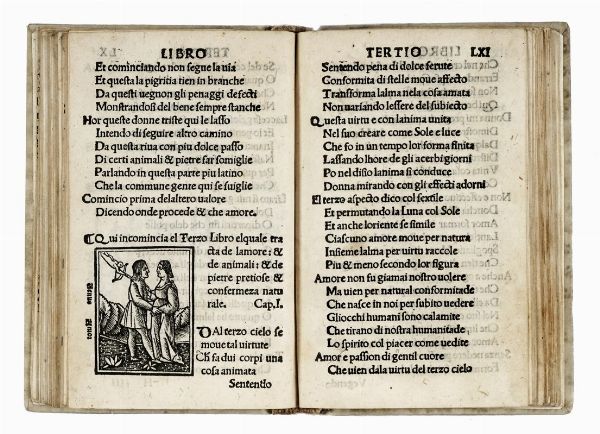 LIBRO
Et cominciando non segue la uia
Et questa la pigritia tien in branche
Da questi uegnon gli penaggi defecti
Monstrandosi del bene sempre stanche
Hor queste donne triste qui le lasso
Intendo di seguire altro camino
Da questa riua con piu dolce passo
Di certi animali & pietre far somiglie
Parlando in questa parte piu latino
Che la commune gente qui se suiglie
Comincio prima del altero ualore
Dicendo onde procede & che amore.
Qui incomincia el Terzo Libro el quale tra
cta de lamore; & de
de animali; & de
piere pretiose &
confermeza natu
rale. Cap,I.
DAl terzo cielo se
moue tal uirtute
Ch fa dui corpi una
cosa animata
Sentendo
TERTIO LXI
Sentendo pena di dolce ferute
Conformita di stelle moue affecto
Transforma lalma nela cosa amata
Non uariando lessere del subiecto
Questa uirtu e con lanima unita
Nel suo creare come Sole e luce
Che fo in un tempo lor forma finita
Lassando lhore de gli acerbi giorni
Po nel disio lanima si conduce
Donna mirando con gli effecti adorni
El terzo aspecto dico col sextile
Et permutando la Luna col Sole
Et anche loriente se simile
Ciascuno amore moue per natura
Insieme lalma per uirtu raccole
Piu & meno secondo lor figura
Amore non fu giamai nostro uolere
Ma uien per natural conformitade
Che nasce in noi per subito uedere
Gliocchi humani sono calamite
Che tirano di nostra humanitade
Lo spirito col piacer come uedite
Amor e passion di gentil cuore
Che uien dala uirtu del terzo cielo